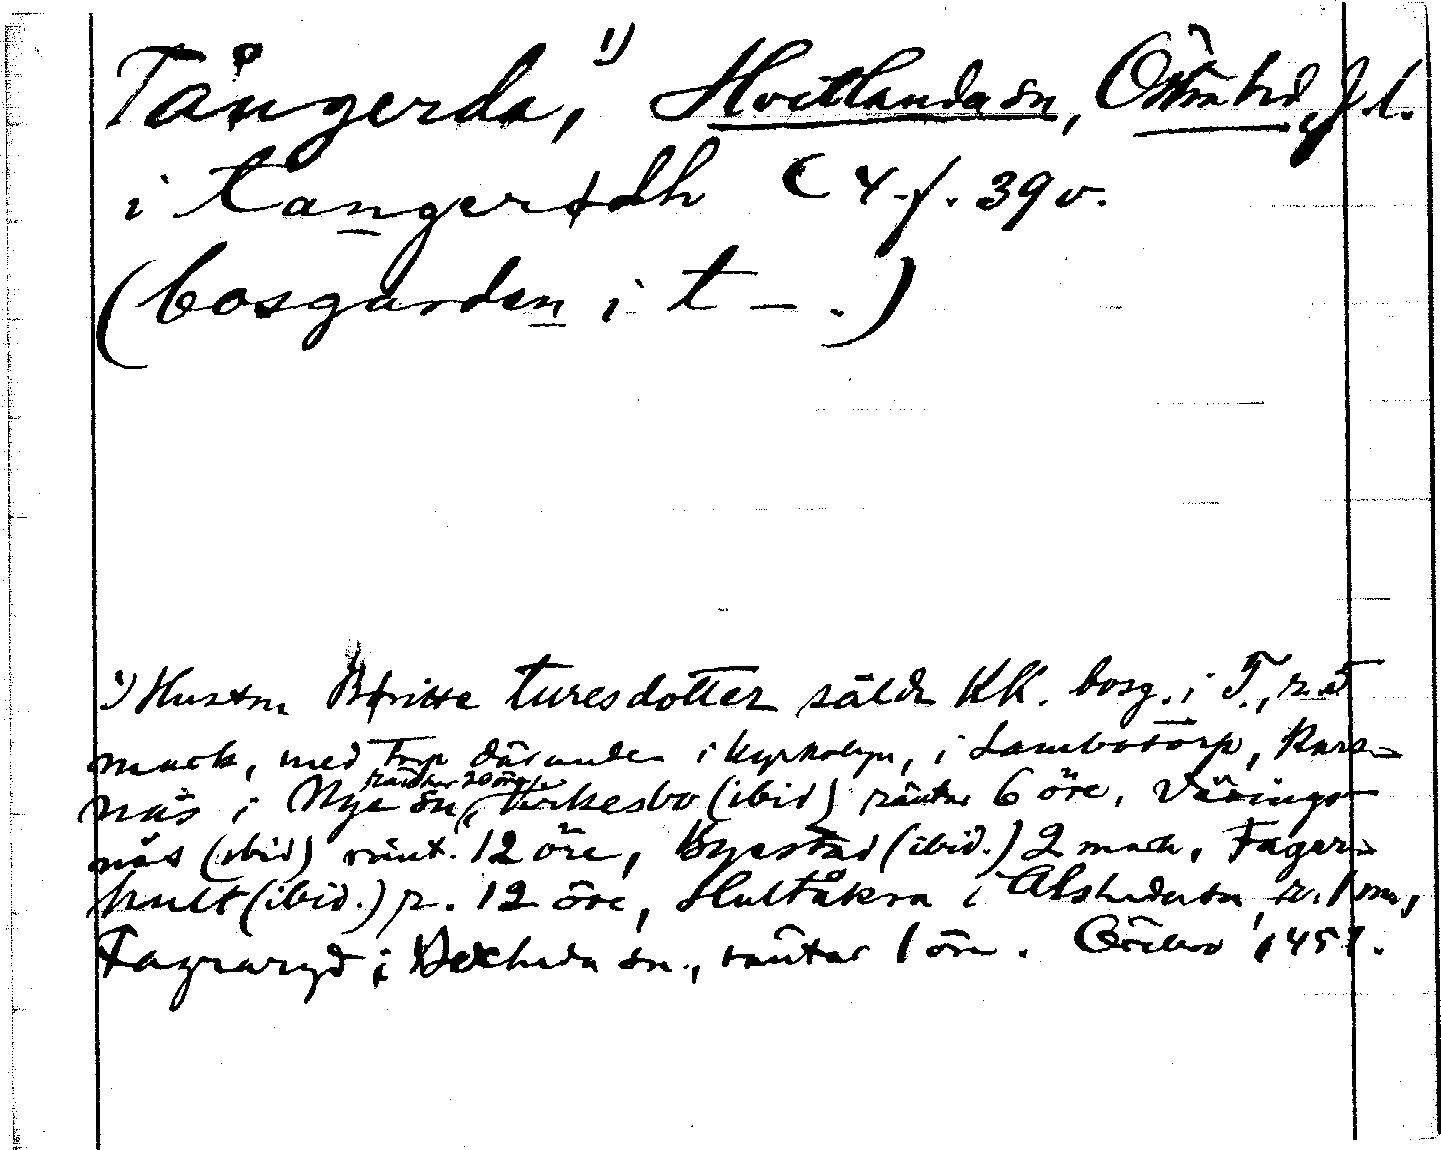 Tångerda, ¹) Hvetlanda sn, Östra hd, J. l.
i tangerdh C 4 f. 39 v.
(bosgarden i t – .)
¹) Hustru Britte turesdotter sålde KK. bosg. i T.,
mark, med torp därunder i kyrkobyn, i Lambotorp, Kars-
räntar 20 öre
näs i Nye sn, Virkesbo (ibid) räntar 6 öre, Värings
näs (ibid) ränt. 12 öre, Byestad (ibid.) 2 mark, Fager-
hult (ibid.) r. 12 öre, Hultåkra i Alsheda sn, r. 1 m.,
Fagraryd i Bexheda sn., räntar 1 öre. Örebro 1457.